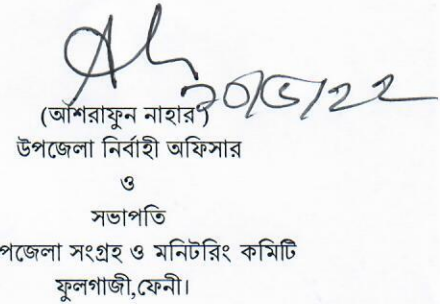 ২০/৬/২২
(আশরাফুন নাহার)
উপজেলা নির্বাহী অফিসার
ও
সভাপতি
পজেলা সংগ্রহ ও মনিটরিং কমিটি
ফুলগাজী,ফেনী।